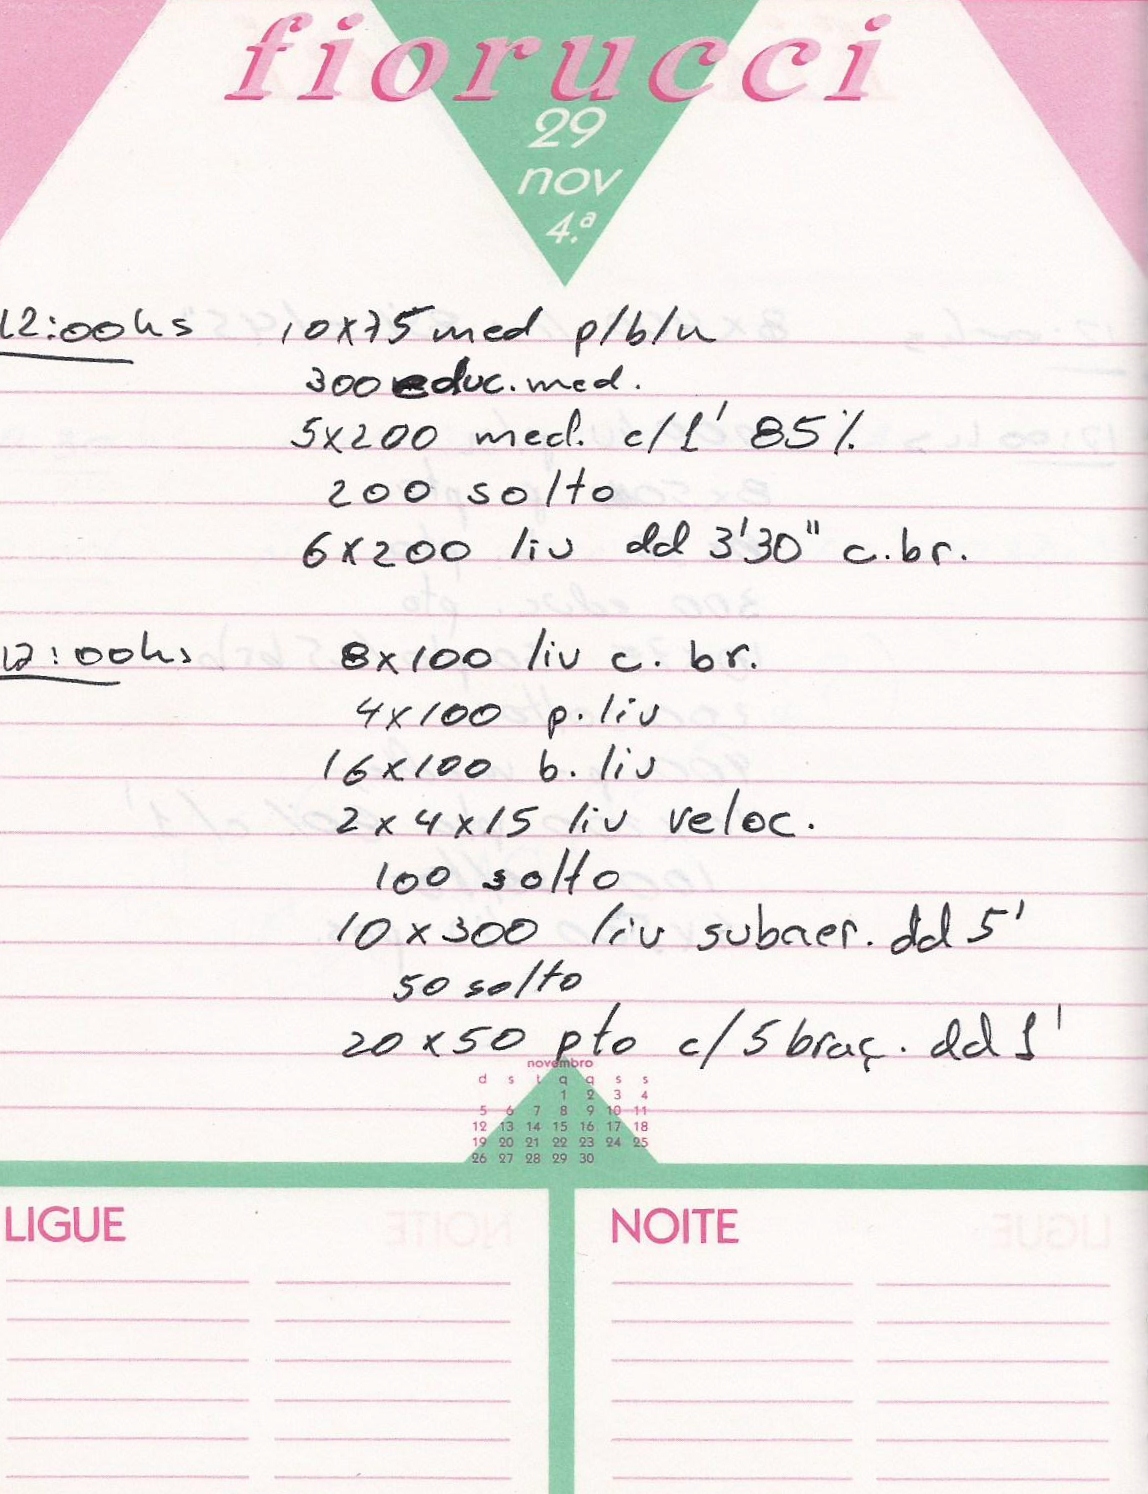 fiorucci
29
nov
4.ª
12:00hs 10x75 med p/b/n
300 educ. med.
5x200 med. c/1' 85%
200 solto
6x200 liv dd 3'30" c.br.
12:00hs 8x100 liv c. br.
4x100 p. liv
16x100 b. liv
2x4x15 liv veloc.
100 solto
10x300 liv subaer. dd 5'
50 solto
20x50 pto c/5 braç. dd 1'
novembro
d s t q q s s
1 2 3 4
5 6 7 8 9 10 11
12 13 14 15 16 17 18
19 20 21 22 23 24 25
26 27 28 29 30
LIGUE NOITE